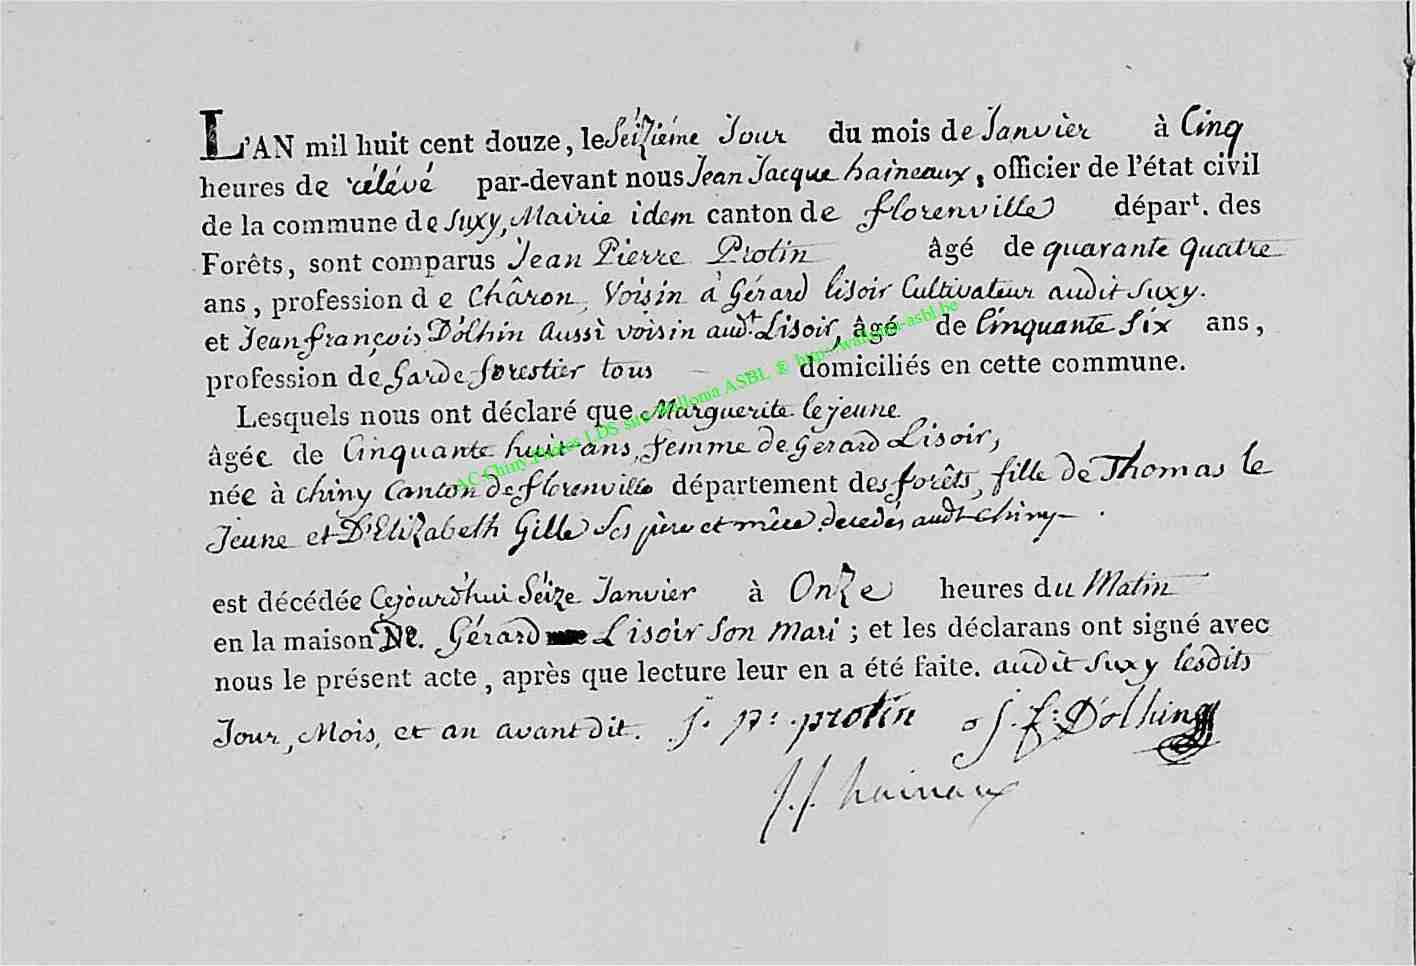 L'AN mil huit cent douze, le Seizième Jour du mois de Janvier à Cinq
heures de rélévé par-devant nous Jean Jacque haineaux, officier de l'état civil
de la commune de Suxy, Mairie idem canton de florenville dépar<sup>t</sup>. des
Forêts, sont comparus Jean Pierre Protin âgé de quarante quatre
ans, profession de Châron, Voisin à Gérard Lisoir Cultivateur audit Suxy.
et Jean françois D'olhin Aussi voisin aud<sup>t</sup>. Lisoir, âgé de Cinquante Six ans,
profession de Garde forestier tous domiciliés en cette commune.
Lesquels nous ont déclaré que Marguerite lejeune
âgée de Cinquante huit ans, femme de Gerard Lisoir,
née à Chiny Canton de florenville département des forêts, fille de Thomas le
Jeune et D'Elizabeth Gille Ses père et mère decedés audt Chiny .
est décédée Cejourd'hui Seize Janvier à Onze heures du Matin
en la maison De. Gérard Lisoir Son Mari ; et les déclarans ont signé avec
nous le présent acte, après que lecture leur en a été faite. audit Suxy lesdits
Jour, Mois, et an avant dit. j. p: protin J. f: D'olhing
J. J. hainaux
AC Chiny Photos LDS site Wallonia ASBL © http://wallonia-asbl.be